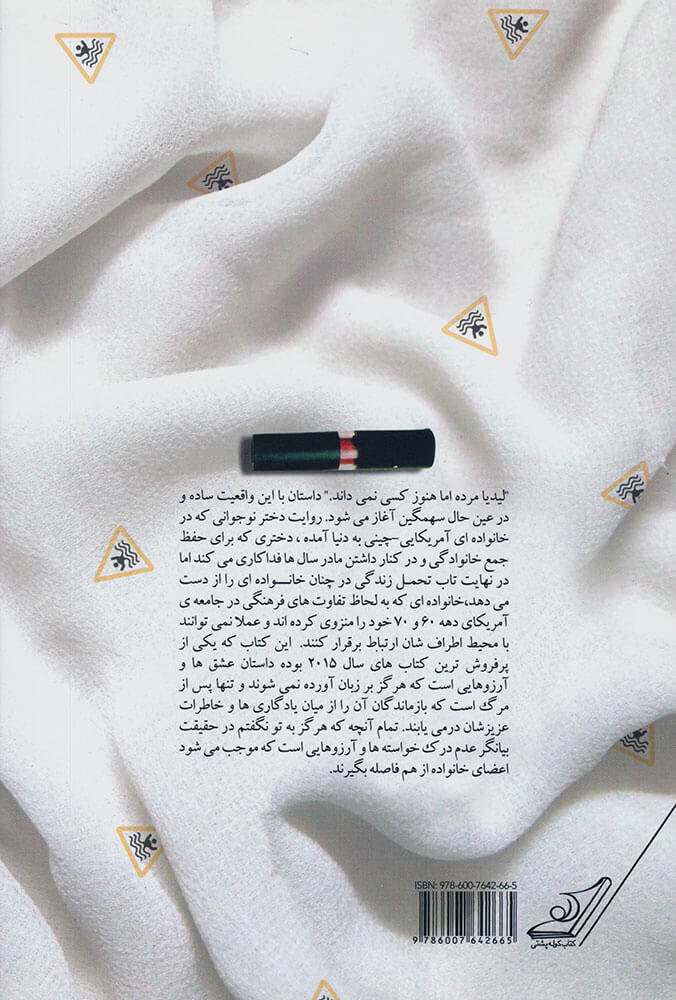 "لیدیا مرده اما هنوز کسی نمی داند." داستان با این واقعیت ساده و
در عین حال سهمگین آغاز می شود. روایت دختر نوجوانی که در
خانواده ای آمریکایی-چینی به دنیا آمده ، دختری که برای حفظ
جمع خانوادگی و در کنار داشتن مادر سال ها فداکاری می کند اما
در نهایت تاب تحمل زندگی در چنان خانــواده ای را از دست
می دهد،خانواده ای که به لحاظ تفاوت های فرهنگی در جامعه ی
آمریکای دهه ۶۰ و ۷۰ خود را منزوی کرده اند و عملا نمی توانند
با محیط اطراف شان ارتباط برقرار کنند. این کتاب که یکی از
پرفروش ترین کتاب های سال ۲۰۱۵ بوده داستان عشق ها و
آرزوهایی است که هرگز بر زبان آورده نمی شوند و تنها پس از
مرگ است که بازماندگان آن را از میان یادگاری ها و خاطرات
عزیزشان درمی یابند. تمام آنچه که هرگز به تو نگفتم در حقیقت
بیانگر عدم درک خواسته ها و آرزوهایی است که موجب می شود
اعضای خانواده از هم فاصله بگیرند.
ISBN: 978-600-7642-66-5
9 786007 642665
کتاب کوله پشتی